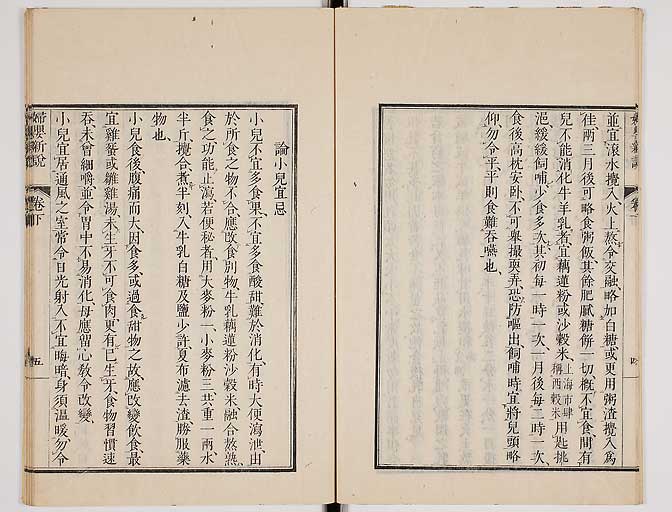 並宜滾水攪入火上熬令交融略加白糖或更用粥渣攪入爲
佳兩三月後可略食粥飯其餘肥膩糖餅一切槪不宜食間有
兒不能消化牛羊乳者宜藕蓮粉或沙穀米上海市肆稱西穀米用匙挑
浥緩緩飼哺少食多次其初每一時一次一月後每二時一次
食後高枕安卧不可舉撮耍弄恐防嘔出飼哺時宜將兒頭略
仰勿令平平則食難吞嚥也
論小兒宜忌
小兒不宜多食果不宜多食酸甜難於消化有時大便瀉泄由
於所食之物不合應改食別物牛乳藕蓮粉沙穀米融合熬熟
食之功能止瀉若便秘者用大麥粉一小麥粉三共重一兩水
半斤攪合煮半刻入牛乳白糖及鹽少許夏布濾去渣勝服藥
物也
小兒食後腹痛而大因食多或過食甜物之故應改變飲食最
宜雞蜑或雛雞湯未生牙不可食肉更有已生牙食物習慣速
吞未曾細嚼並令胃中不易消化母應留心敎令改變
小兒宜居通風之室常令日光射入不宜晦暗身須溫暖勿令
婦嬰新說
卷下
五